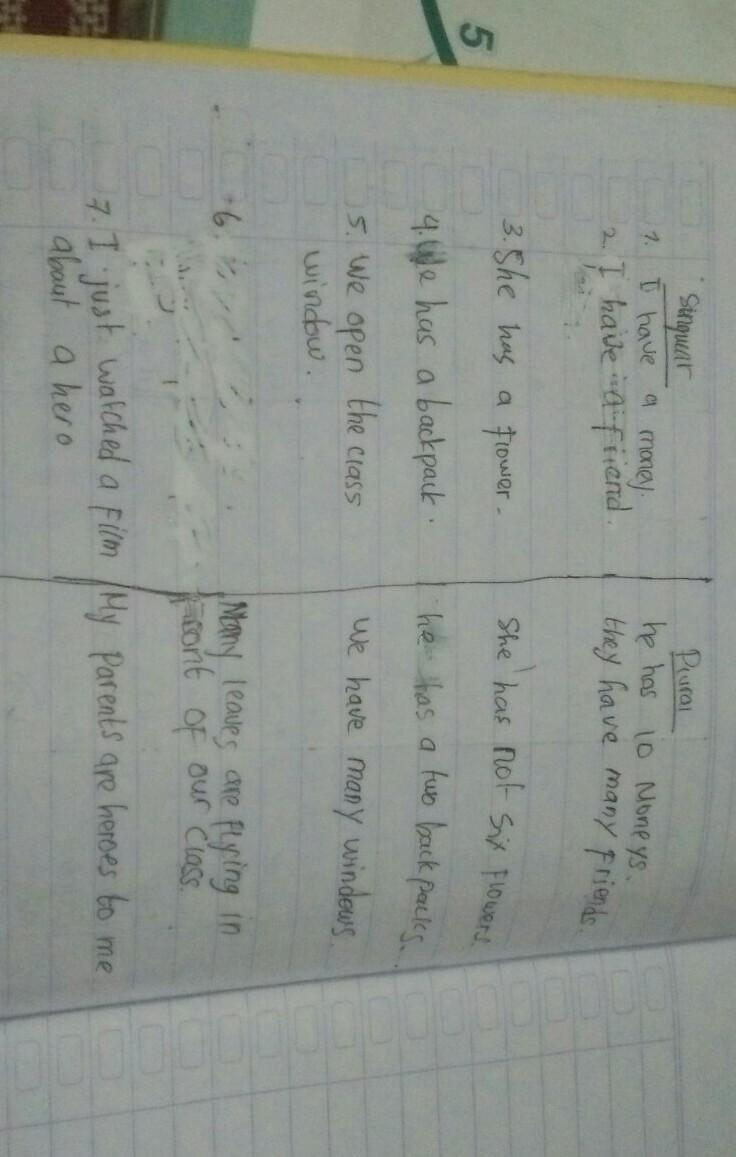 5
Singular
Plural
1. I have a money.
he has 10 Moneys.
2. I have a friend.
they have many friends.
3. She has a flower.
She has not six flowers.
4. We has a backpack.
he has a two backpacks.
5. We open the class
window.
We have many windows.
6.
Many leaves are flying in
front of our class.
7. I just watched a film
about a hero
My parents are heroes to me